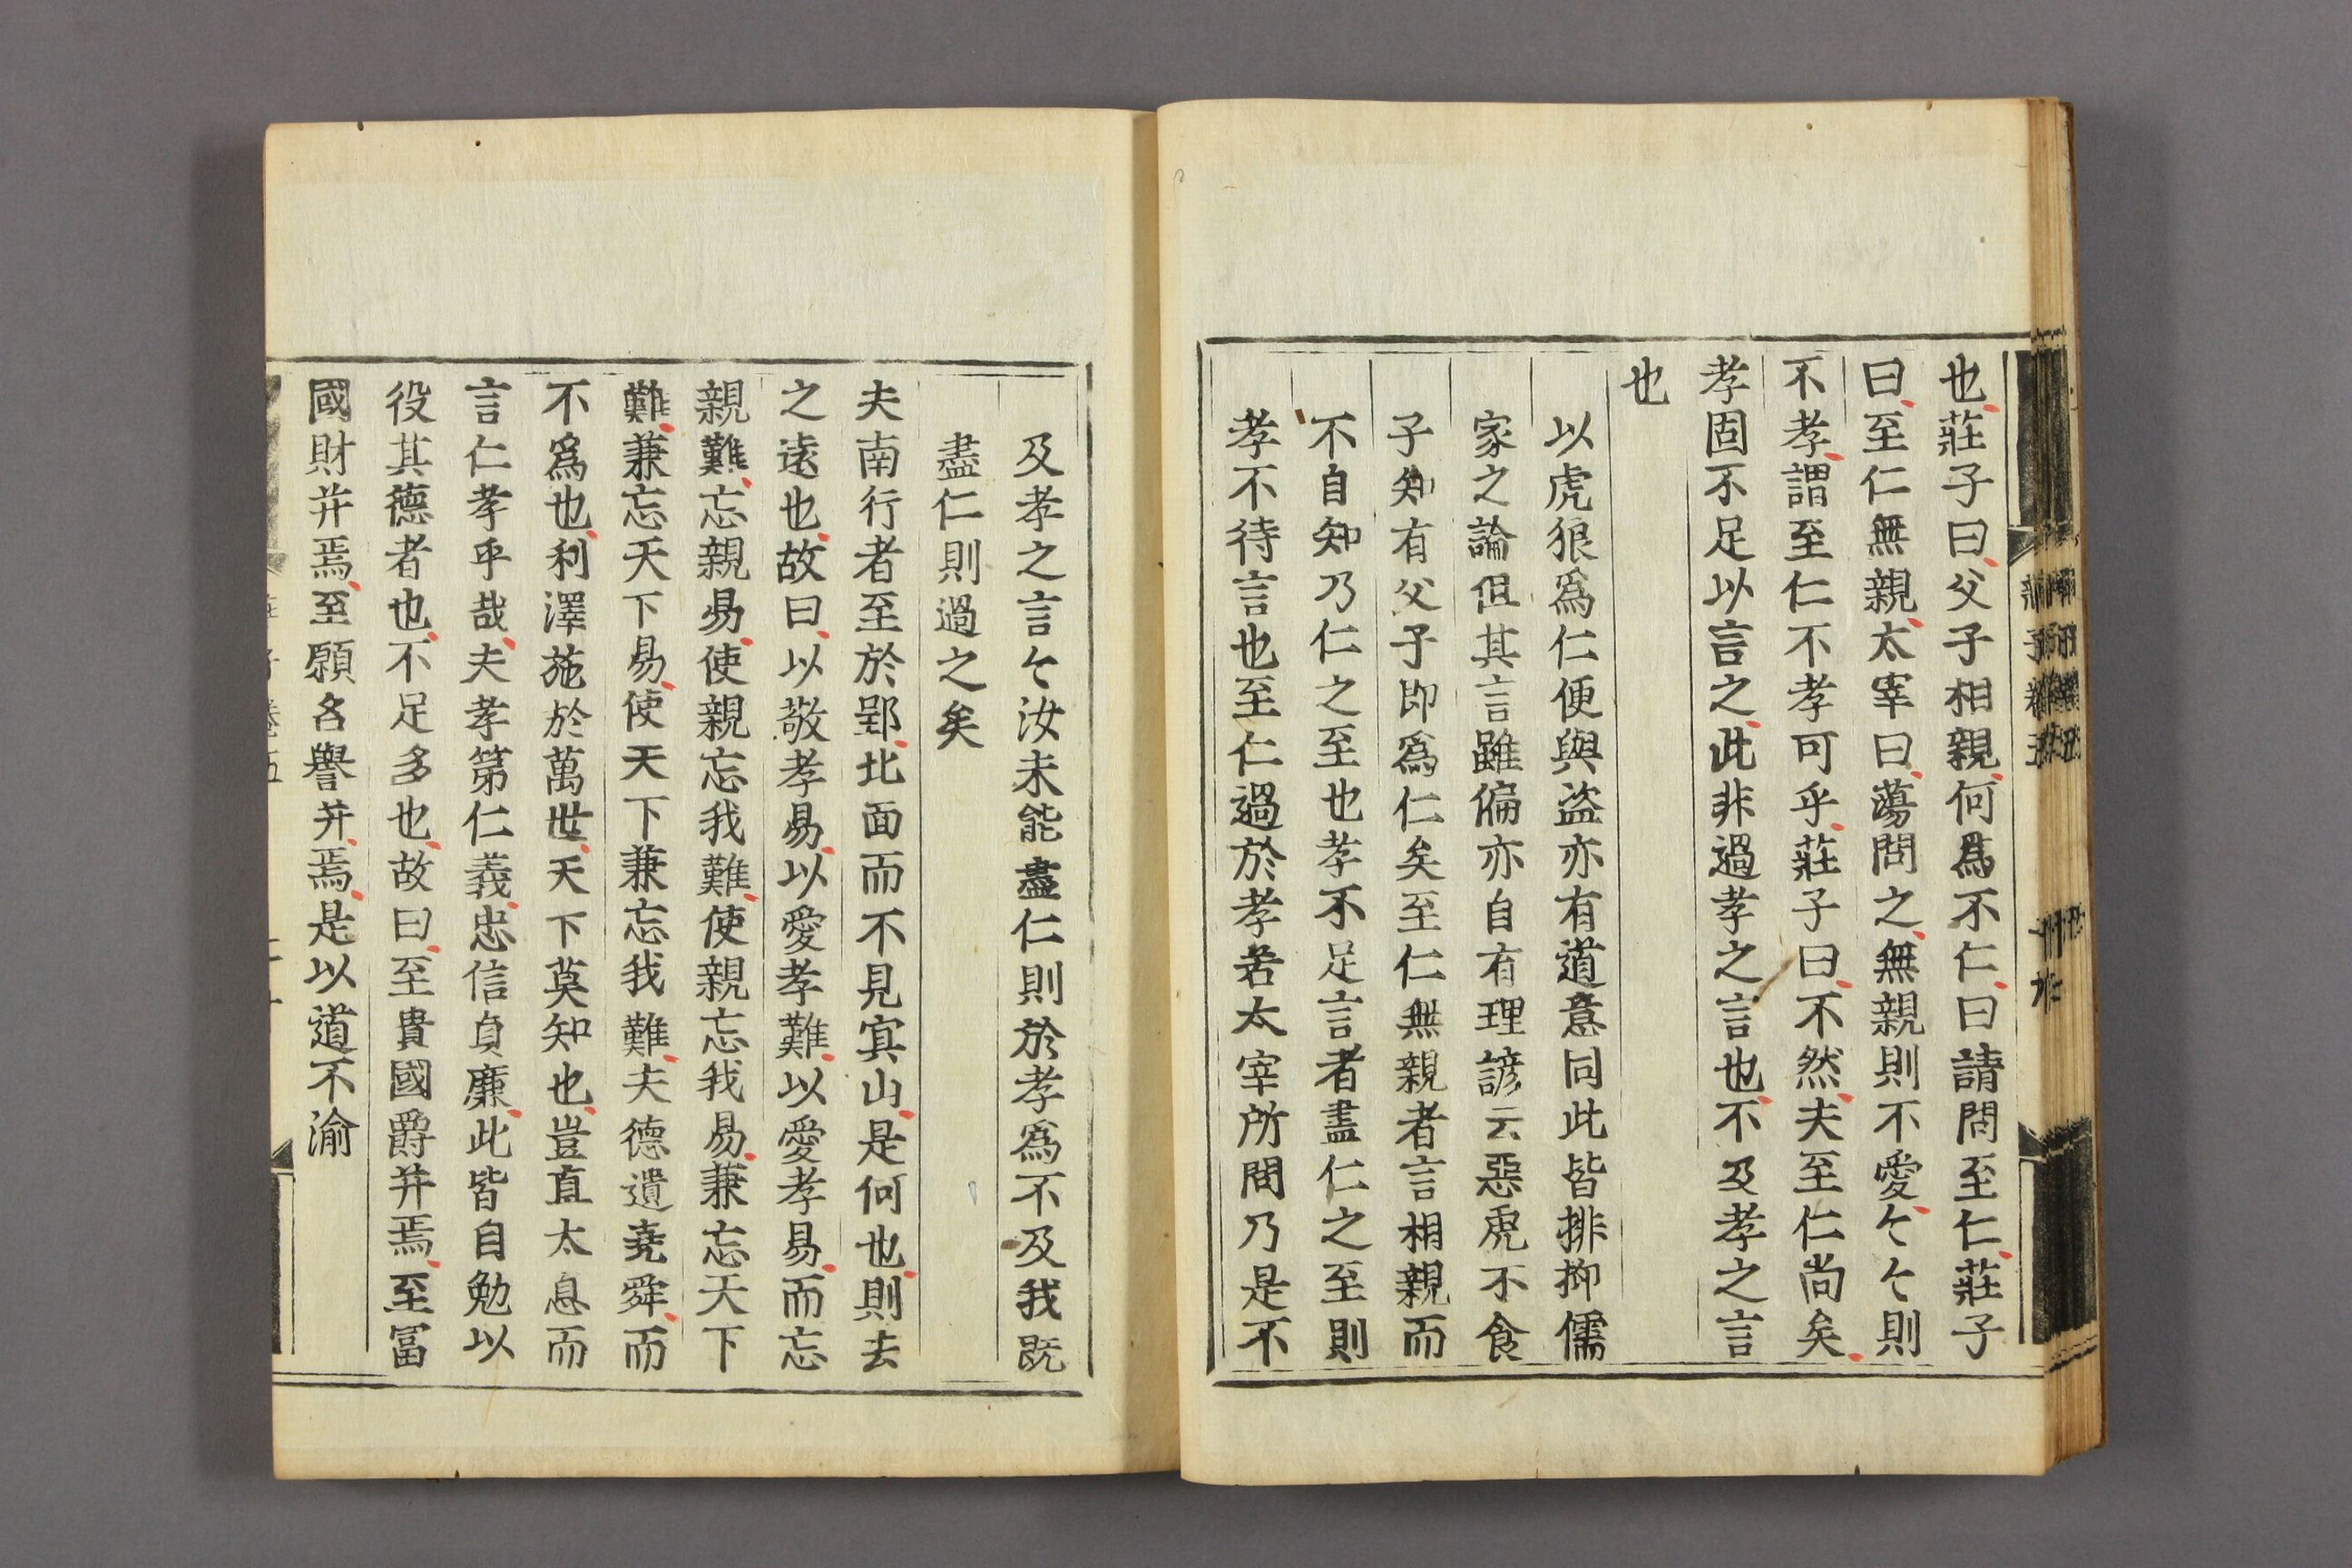 也莊子曰父子相親何爲不仁曰請問至仁莊子
曰至仁無親太宰曰蕩問之無親則不愛〻〻則
不孝謂至仁不孝可乎莊子曰不然夫至仁尚矣
孝固不足以言之此非過孝之言也不及孝之言
也
以虎狼爲仁便與盜亦有道意同此皆排抑儒
家之論但其言雖偏亦自有理諺云惡虎不食
子知有父子即爲仁矣至仁無親者言相親而
不自知乃仁之至也孝不足言者盡仁之至則
孝不待言也至仁過於孝若太宰所問乃是不
及孝之言〻汝未能盡仁則於孝爲不及我旣
盡仁則過之矣
夫南行者至於郢北面而不見冥山是何也則去
之遠也故曰以敬孝易以愛孝難以愛孝易而忘
親難忘親易使親忘我難使親忘我易兼忘天下
難兼忘天下易使天下兼忘我難夫德遺堯舜而
不爲也利澤施於萬世天下莫知也豈直太息而
言仁孝乎哉夫孝第仁義忠信貞廉此皆自勉以
役其德者也不足多也故曰至貴國爵并焉至冨
國財并焉至願名譽并焉是以道不渝